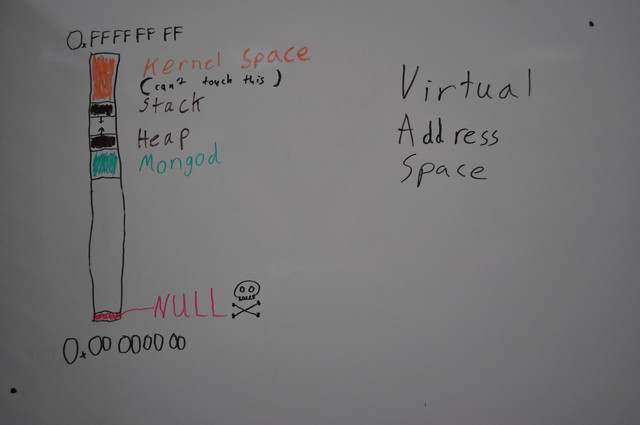 0xFFFFFFFF
Kernel Space
(can't touch this)
Stack
Heap
Mongod
NULL
0x00000000
Virtual
Address
Space